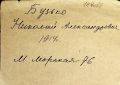 Бузько
Николай Александрович
1914.
М. Морская 76